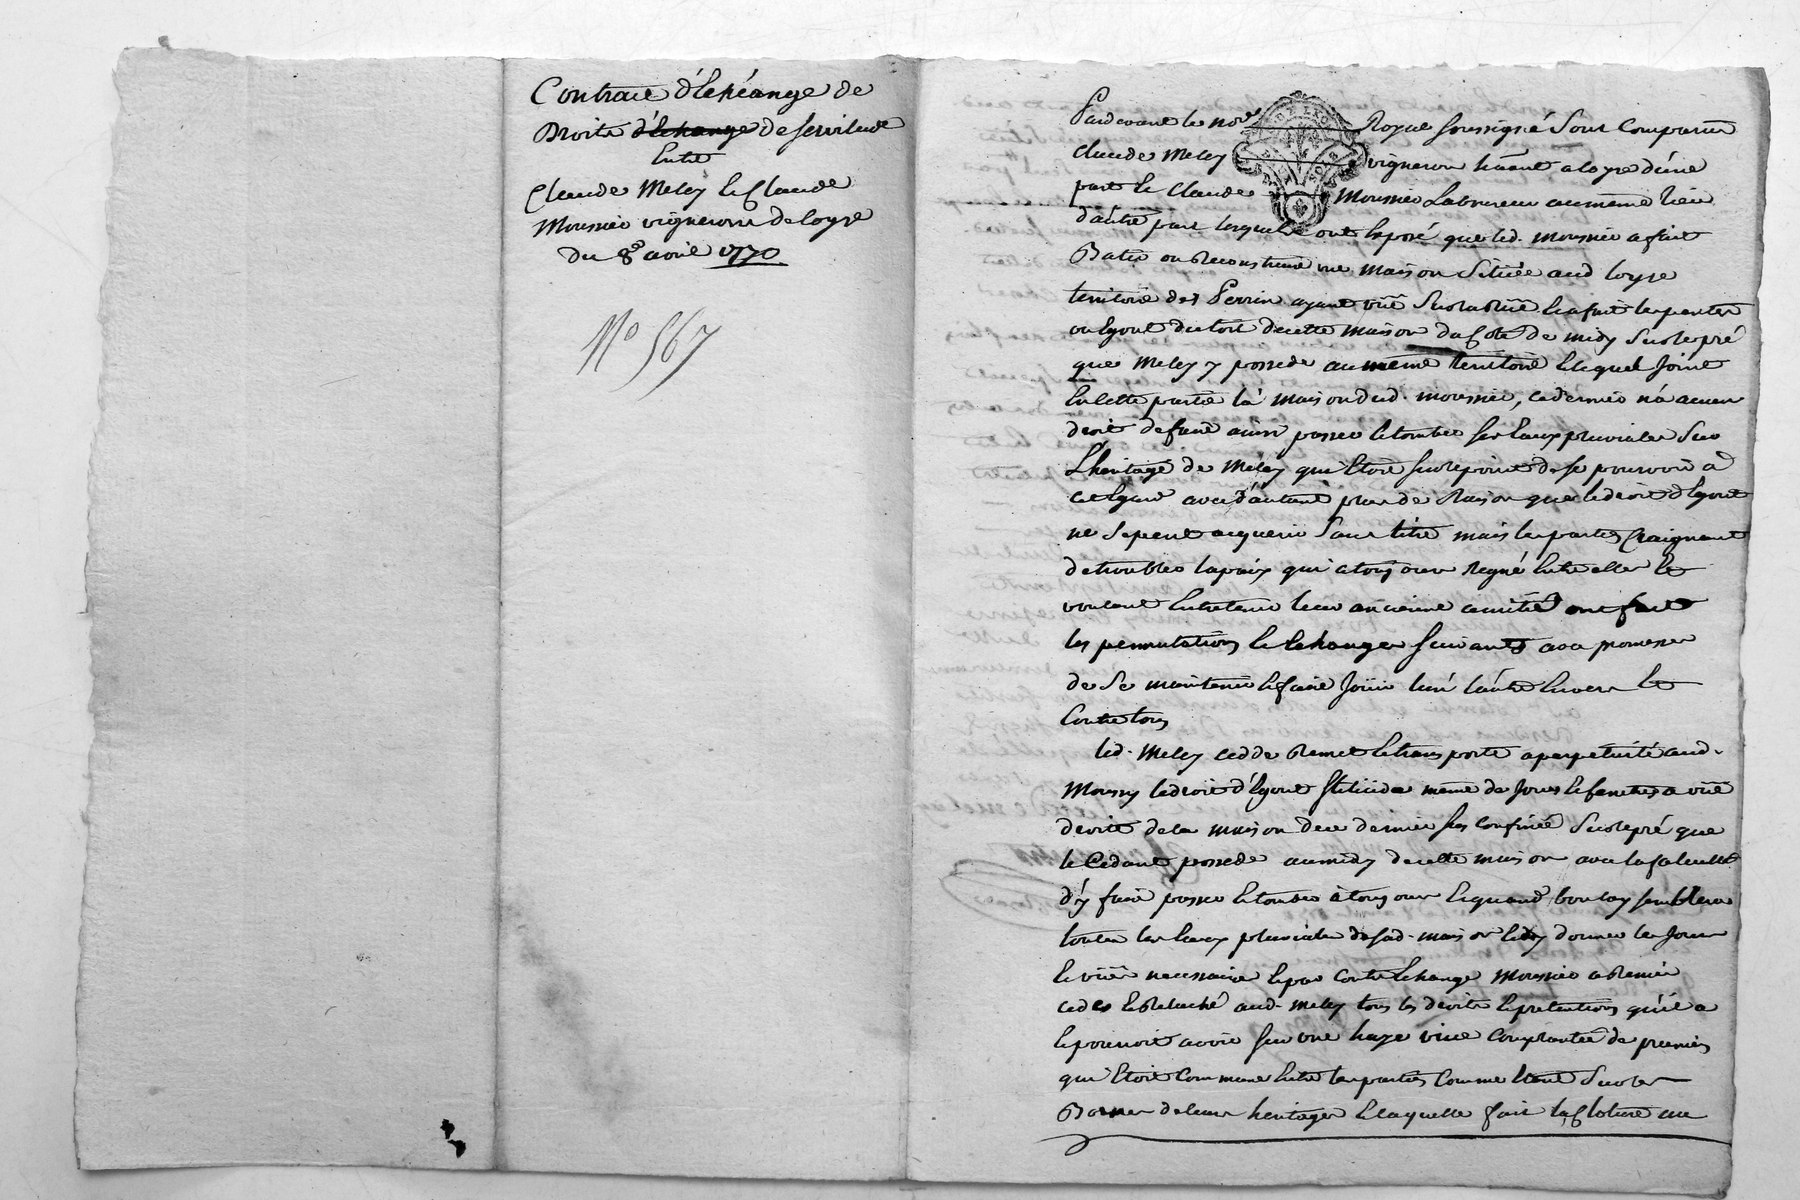 Contract d'Echéange de
Droits d'Echange de Servitude
Entre
Claude Meley & Claude
Mousnier vignerons de loyse
du 8e avril 1770
No 567
Pardevant le nore Royal soussigné Sont Comparus
Claude Meley vigneron hant a loyse d'une
part & Claude Mousnier Laboureur au même lieu
d'autre part lesquels ont Exposé que led. Mousnier a fait
Batir ou Reconstruire une maison Située aud loyse
territoire des Perrin ayant vüe Sur la & a fait les pentes
ou Egout du toit de cette maison du Coté de midy Sur le pré
que Meley y possede au même territoire & lequel Joint
En cette partie la maison dud. mousnier, ce dernier n'a aucun
droit de faire ainsi passer & tomber ses Eaux pluviales Sur
L'heritage de Meley qui Etoit sur le point de se pourvoir a
cet Egard avec d'autant plus de Raison que le droit d'Egout
ne Se peut acquerir Sans titre mais les parties Craignant
de troubler la paix qui a toujours Regné Entre elles &
voulant Entretenir leur ancienne amitié ont fait
les permutations & Echanges suivants avec promesses
de Se maintenir & faire Joüir l'un l'autre Envers &
Contre tous
led. Meley cedde Remet & transporte a perpetuité aud.
Moussy le droit d'Egout Stilicide même de Jours & fenetres a vüe
droite de la maison de ce dernier Sus confinée Sur le pré que
le Cedant possede au midy de cette maison avec la faculté
d'y faire passer & tomber a toujours & quand bon luy semblera
toutes les Eaux pluviales de sad. maison & d'y donner les Jours
& vües necessaires & par Contre Echange Mousnier a Remis
cedé & Relaché aud. meley tous les droits & pretentions qu'il a
& pouvoit avoir sur une haye vive Complantée de pruniers
qui Etoit Commune Entre les parties Comme Etant Sur les
Bornes de leurs heritages & laquelle fait la Cloture au